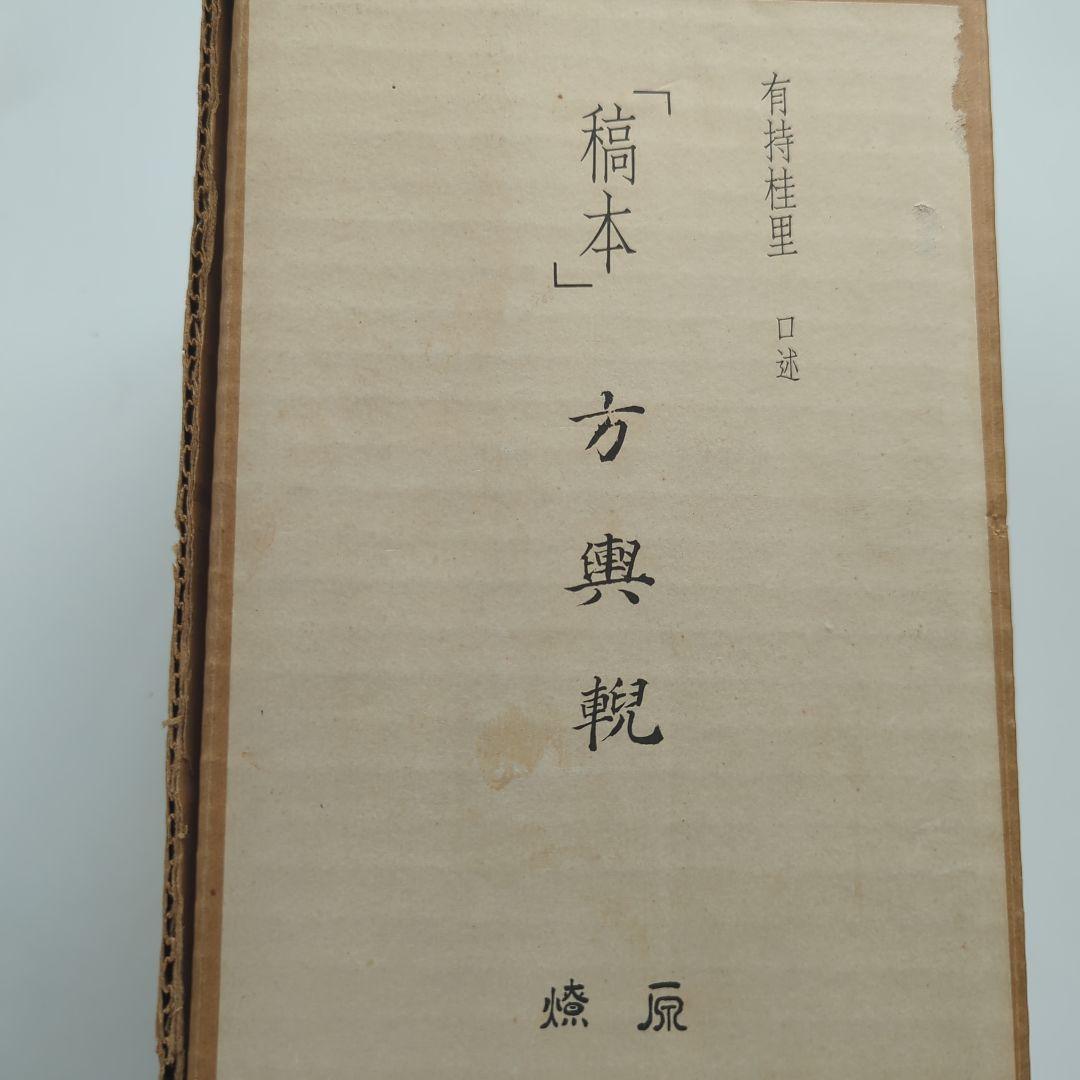 有持桂里 口述
「稿本」方輿輗
燎原